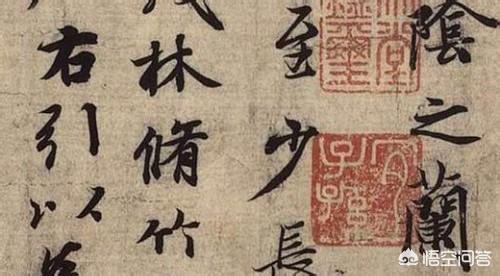 陰之蘭
至少長
林脩竹
右引以
悟空问答